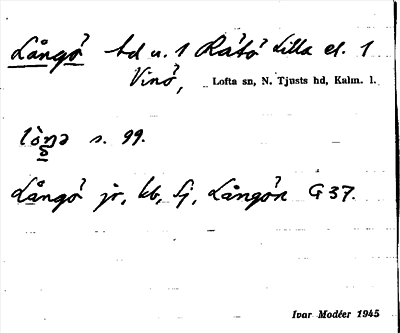 Långö td u. 1 Rätö Lilla el. 1
Vinö, Lofta sn, N. Tjusts hd, Kalm. l.
s. 99.
Långö jr, kb, fj, Långön G 37.
Ivar Modéer 1945